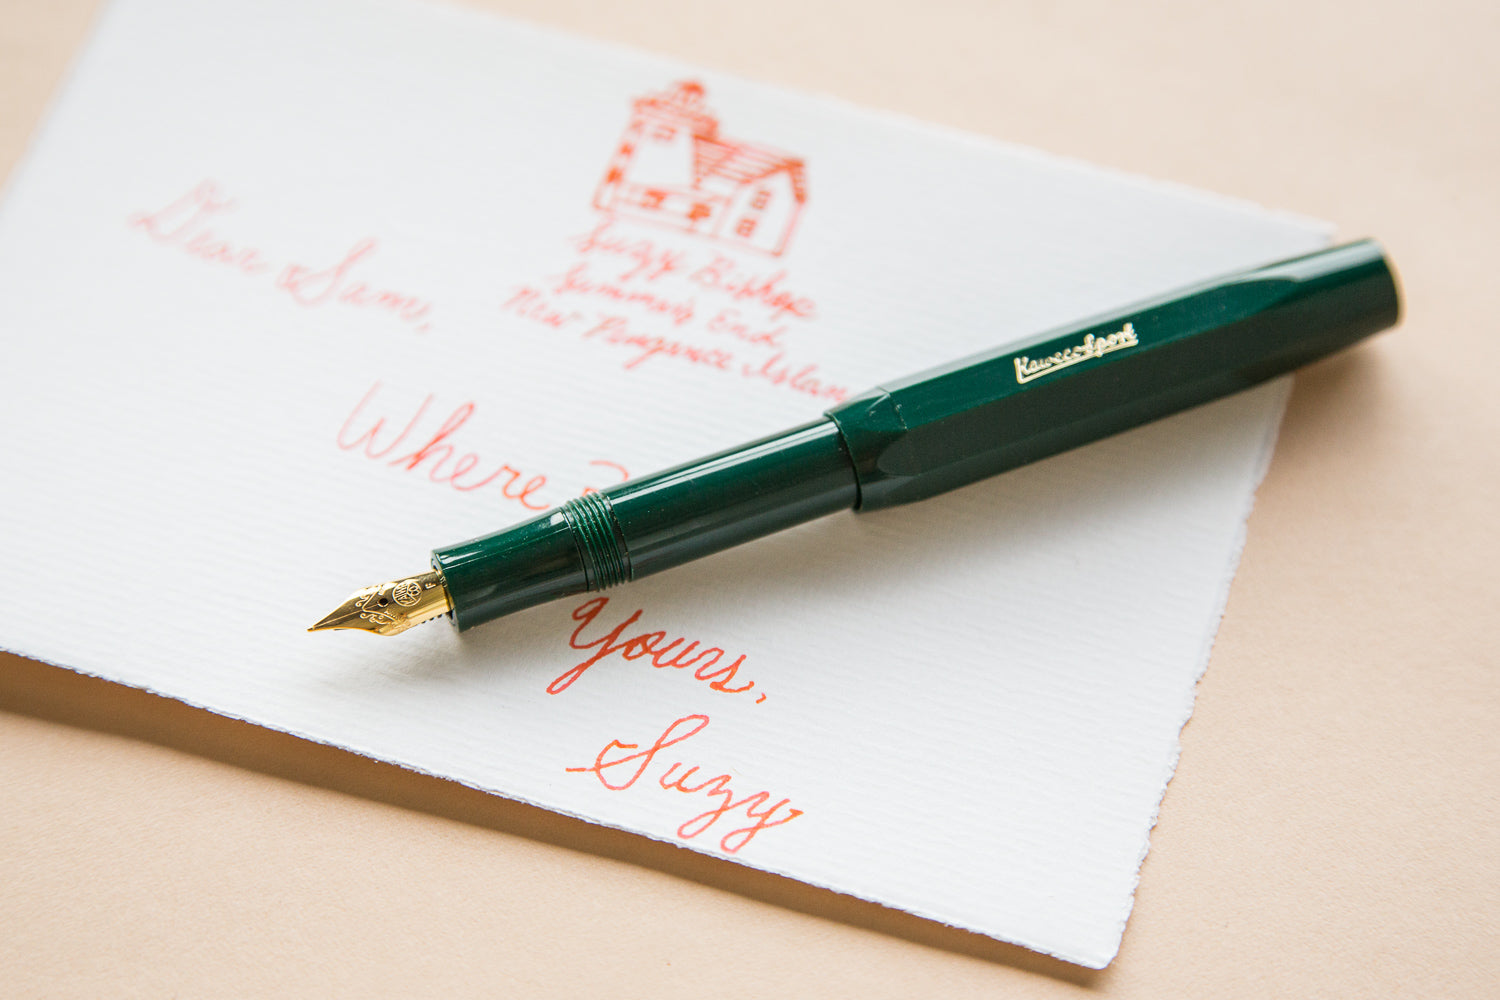 Suzy Bishop
Summer's End
New Penzance Islan
Dear Sam,
Where
Yours,
Suzy
Kaweco Sport
F